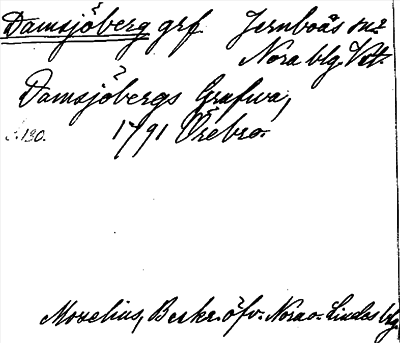 Damsjöberg grf. Jernboås sn?
Nora blg. Vstl.
Damsjöbergs Grufwa,
s. 130. 1791 Örebro.
Moselius, Beskr. öfv. Nora o. Lindes blg.